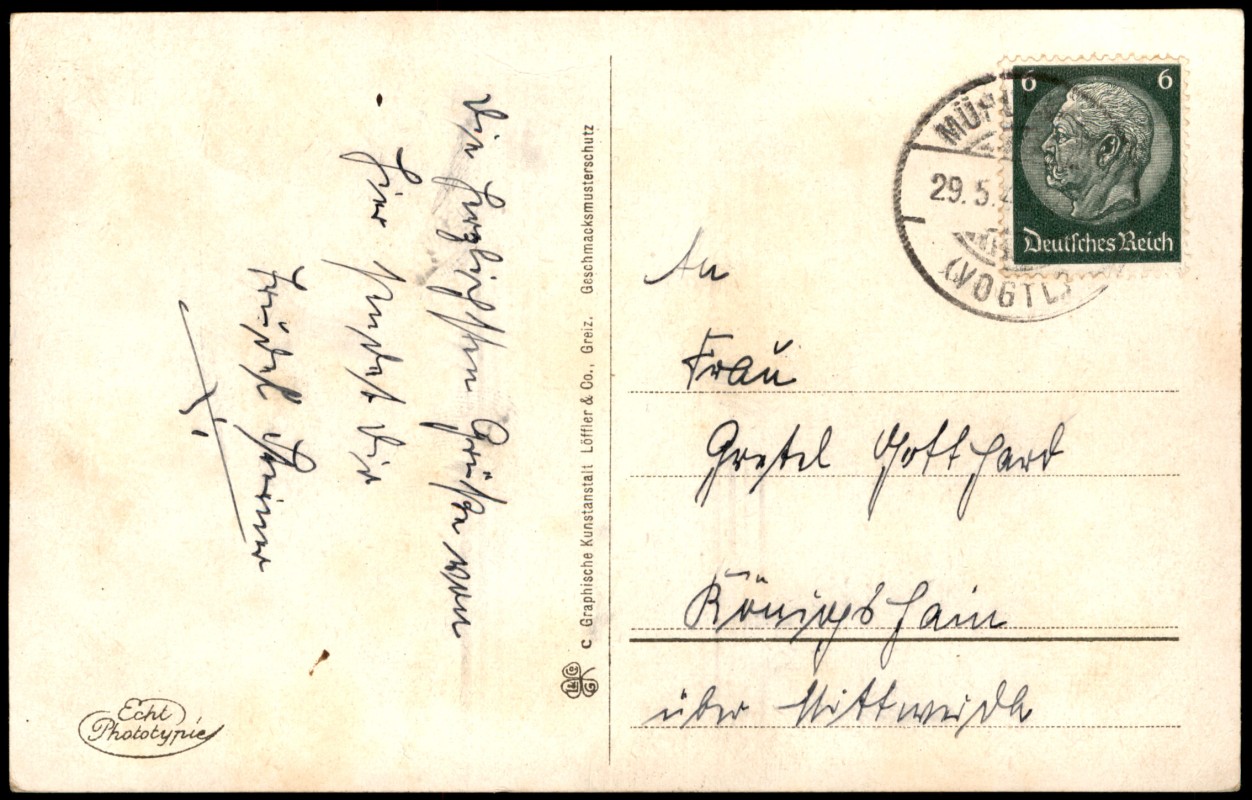 Die herzlichsten Grüße von
hier sendet Dir
C Graphische Kunstanstalt Löffler & Co., Greiz. Geschmacksmusterschutz
Echt
Phototypie
6 6
Deutsches Reich
29.5.
(VOGTL)
An
Frau
Gretel Gotthard
Königshain
über Mittweida